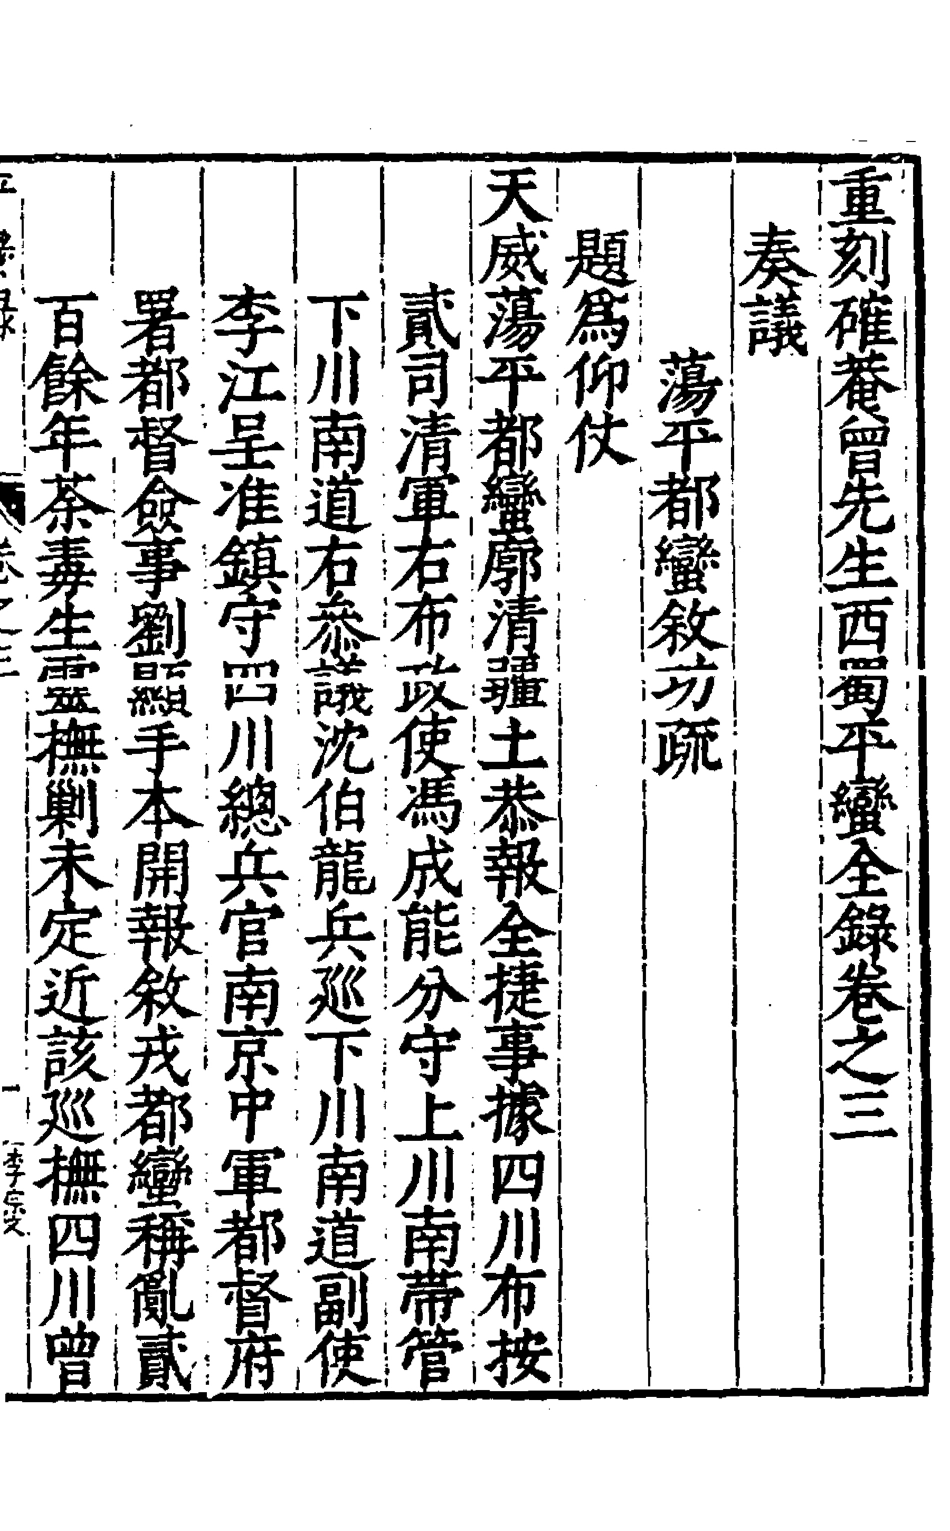 重刻確菴曾先生西蜀平蠻全錄卷之三
奏議
蕩平都蠻敘功疏
題爲仰仗
天威蕩平都蠻廓清疆土恭報全捷事據四川布按
貳司清軍右布政使馮成能分守上川南帶管
下川南道右叅議沈伯龍兵巡下川南道副使
李江呈准鎮守四川總兵官南京中軍都督府
署都督僉事劉顯手本開報敘戎都蠻稱亂貳
百餘年荼毒生靈撫剿未定近該巡撫四川曾
卷之三
一
李宗文